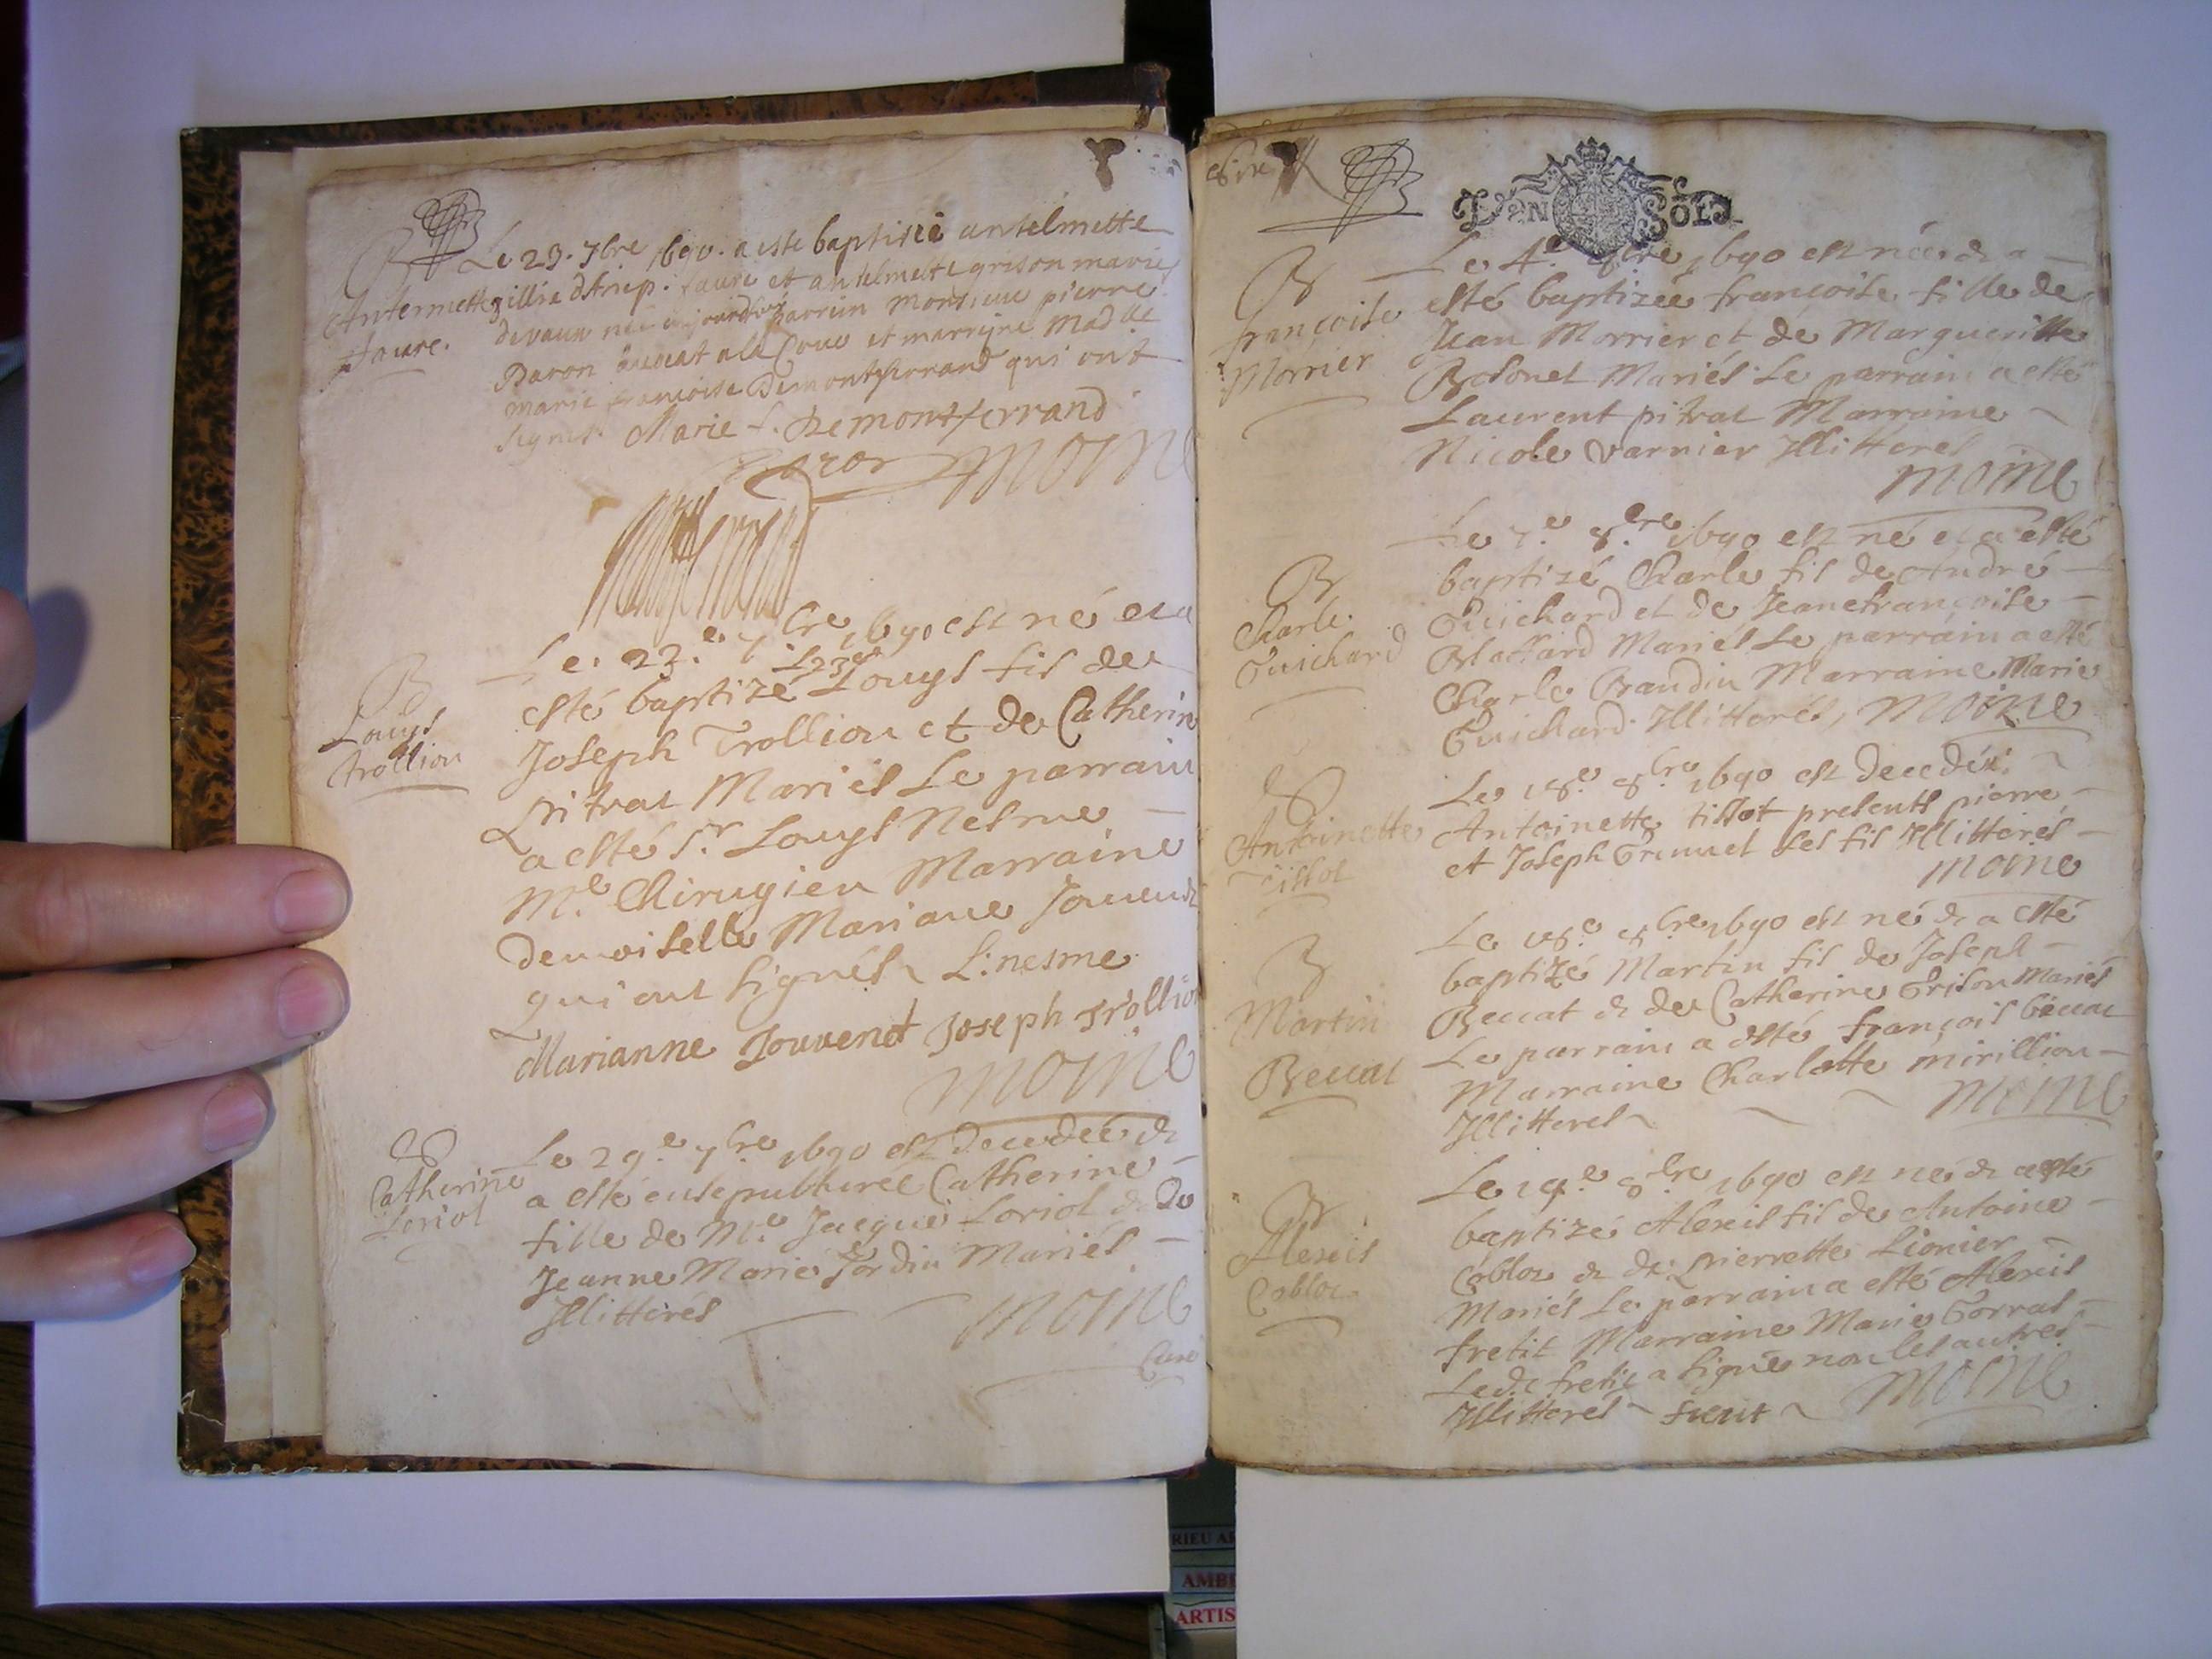 B
Antermette
faure.
Le 23. 7bre 1690. a este baptisée antelmette
fillie faure et antelmette grison mariés
devaux née parrin Monsieur pierre
Baron avocat a la Cour et marreine Mad.lle
marie francoise Demontferrand qui ont
signés. Marie f. Demontferrand
Baron Moine
B
Louys
trollion
Le 23.e 7bre 1690 est né et a
L23e
esté baptizé Louys fil de
Joseph Trollion et de Catherin
pitrat Mariés Le parrain
a esté S.r Louys Nesme
M.e Chirugien Marraine
demoiselle Mariane Jouuen
qui ont signés L: nesme
Marianne Jouvenet Joseph Trollion
Moine
Catherine
Loriol
Le 29.e 7bre 1690 est decedée &
a esté ensepulturée Catherine
fille de M.e Jacque Loriol & De
Jeanne Marie Jordin Mariés
Illitterés Moine
Curé
B
françoise
Morrier
UN SOL
Le 4.e 8bre 1690 est née & a
esté baptizée françoise fille de
Jean Morrier et de Margueritte
Bosonet Mariés Le parrain a esté
Laurent pitrat Marraine
Nicole varnier Illitterés
Moine
B
Charle
Guichard
Le 7.e 8.bre 1690 est né et a esté
baptizé Charle fil de André
Guichard et de Jeanefrançoise
Blaffard Mariés Le parrain a esté
Charle Brandin Marraine Marie
Guichard Illitterés, Moine
Antoinette
Tissot
Le 18.e 8.bre 1690 est decedée
Antoinette tissot presents pierre
et Joseph Grumet ses fil Illitterés
Moine
B
Martin
Beccat
Le 18.e 8bre 1690 est né & a esté
baptizé Martin fil de Joseph
Beccat & de Catherine Grison Mariés
Le parrain a esté françois beccat
Marraine Charlotte mirillion
Illitterés Moine
B
Alexis
Cobloz
Le 19.e 8bre 1690 est né & a esté
baptizé Alexis fil de Antoine
Cobloz & de pierrette Lionier
Mariés Le parrain a esté Alexis
fretit Marraine Marie Gorrat
Led.t fretit a signé non les autres
Illitterés Moine
AMBE
ARTIS